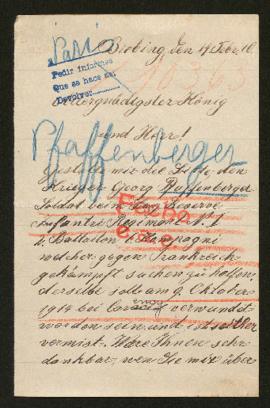 Biebing, den 4 Febr. 16
Paris
Pedir informe
Que se hace así
Devolver
Allergnädigster König
und Herr!
Pfaffenberger
Gestatte mir die Bitte, den
Krieger Georg Pfaffenberger
Soldat beim bay. Reserve
Infantrie Regiment N.
Battallon Kompagni
welcher gegen Frankreich
gekämpft suchen zu helfen
derselbe solle am 9. Oktober
1914 bei verwundet
worden sein und ist seither
vermist. Wäre Ihnen sehr
dankbar, wen Sie mir über
Fecha